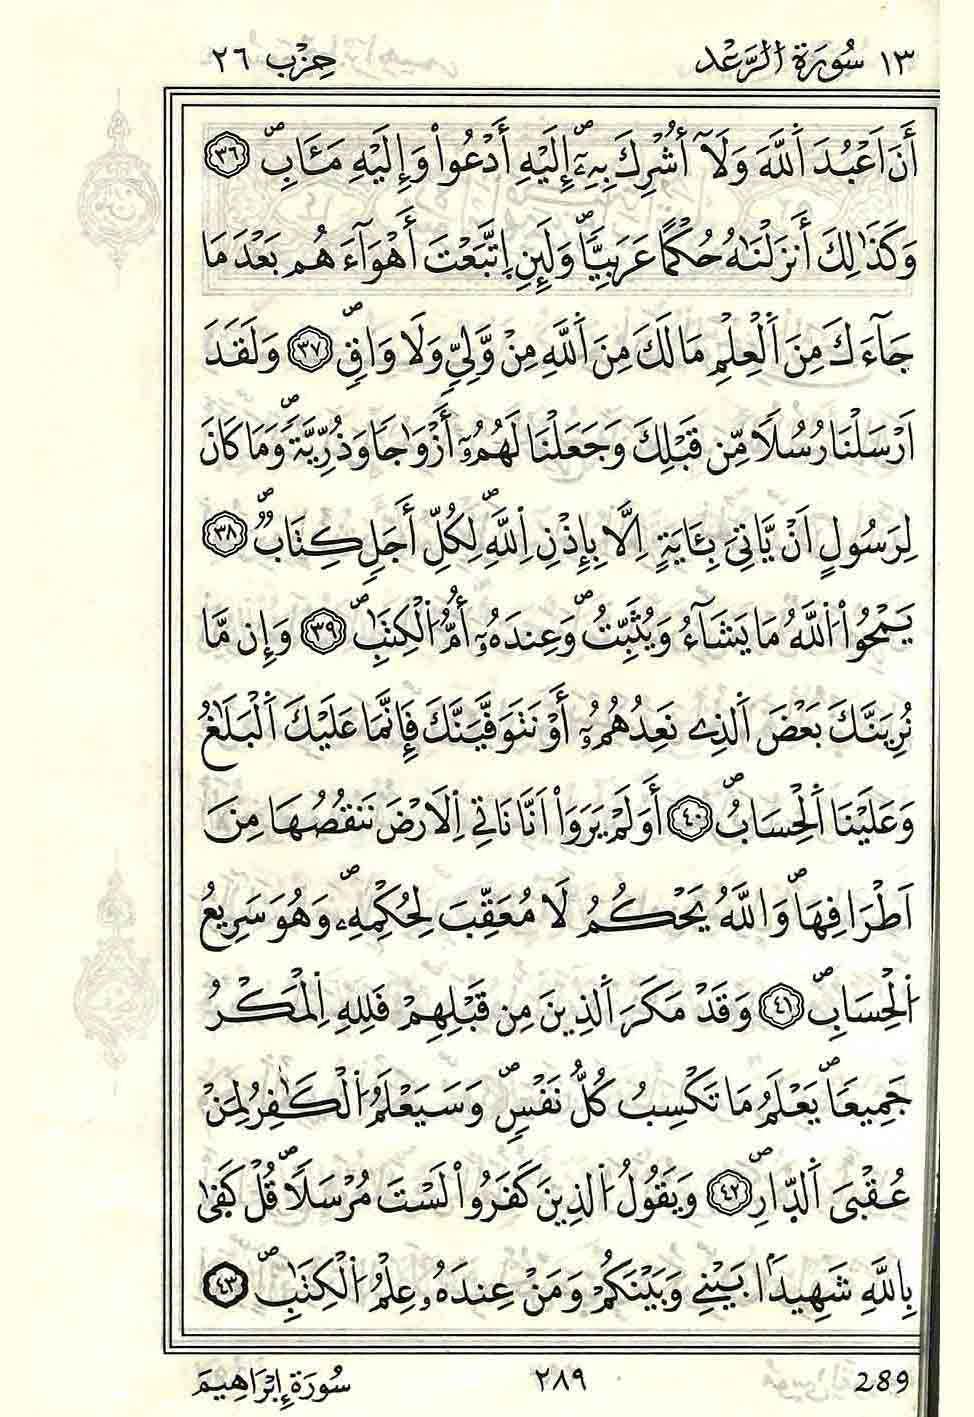 ١٣ سُورَةُ الرَّعْد حِزْب ٢٦
أَنَ اَعْبُدَ اَللَّهَ وَلَآ أُشْرِكَ بِهِۦٓۖ إِلَيْهِ أَدْعُواْ وَإِلَيْهِ مَـَٔابِۖ ٣٦
وَكَذَٰلِكَ أَنزَلْنَٰهُ حُكْماً عَرَبِيّاًۖ وَلَئِنِ اِتَّبَعْتَ أَهْوَآءَهُم بَعْدَ مَا
جَآءَكَ مِنَ اَلْعِلْمِ مَا لَكَ مِنَ اَللَّهِ مِنْ وَّلِيّٖ وَلَا وَاقٖۖ ٣٧ وَلَقَدَ
اَرْسَلْنَا رُسُلاً مِّن قَبْلِكَ وَجَعَلْنَا لَهُمُۥٓ أَزْوَٰجاً وَذُرِّيَّةًۖ وَمَا كَانَ
لِرَسُولٍ اَنْ يَّاتِيَ بِـَٔايَةٍ اِلَّا بِإِذْنِ اِللَّهِۖ لِكُلِّ أَجَلٖ كِتَابٌۖ ٣٨
يَمْحُواْ اُللَّهُ مَا يَشَآءُ وَيُثَبِّتُۖ وَعِندَهُۥٓ أُمُّ اُلْكِتَٰبِۖ ٣٩ وَإِن مَّا
نُرِيَنَّكَ بَعْضَ اَلذِے نَعِدُهُمُۥٓ أَوْ نَتَوَفَّيَنَّكَ فَإِنَّمَا عَلَيْكَ اَلْبَلَٰغُ
وَعَلَيْنَا اَلْحِسَابُۖ ٤٠ أَوَلَمْ يَرَوَاْ اَنَّا نَاتِے اِلَارْضَ نَنقُصُهَا مِنَ
اَطْرَافِهَاۖ وَاللَّهُ يَحْكُمُ لَا مُعَقِّبَ لِحُكْمِهِۦۖ وَهُوَ سَرِيعُ
اُلْحِسَابِۖ ٤١ وَقَدْ مَكَرَ اَلذِينَ مِن قَبْلِهِمْ فَلِلهِ اِلْمَكْرُ
جَمِيعاًۖ يَعْلَمُ مَا تَكْسِبُ كُلُّ نَفْسٖۖ وَسَيَعْلَمُ اُلْكَٰفِرُ لِمَنْ
عُقْبَى اَلدّارِۖ ٤٢ وَيَقُولُ اُلذِينَ كَفَرُواْ لَسْتَ مُرْسَلاًۖ قُلْ كَفَىٰ
بِاللَّهِ شَهِيداً بَيْنِے وَبَيْنَكُمْ وَمَنْ عِندَهُۥ عِلْمُ اُلْكِتَٰبِۖ ٤٣
289 ٢٨٩ سُورَةُ إِبْرَاهِيمَ